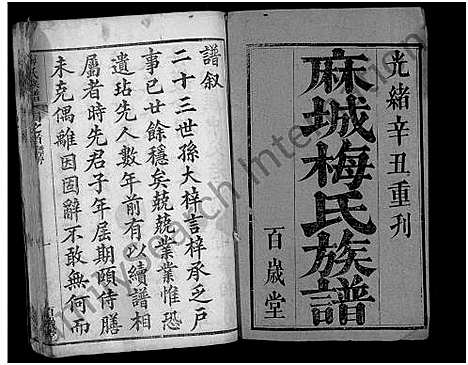 光緒辛丑重刊
麻城梅氏族譜
百歲堂
譜叙
二十三世孫大梓言梓承乏戶
事已廿餘稔矣兢兢業業惟恐
遺玷先人數年前有以續譜相
屬者時先君子年屆期頤侍膳
未克偶離因固辭不敢無何而